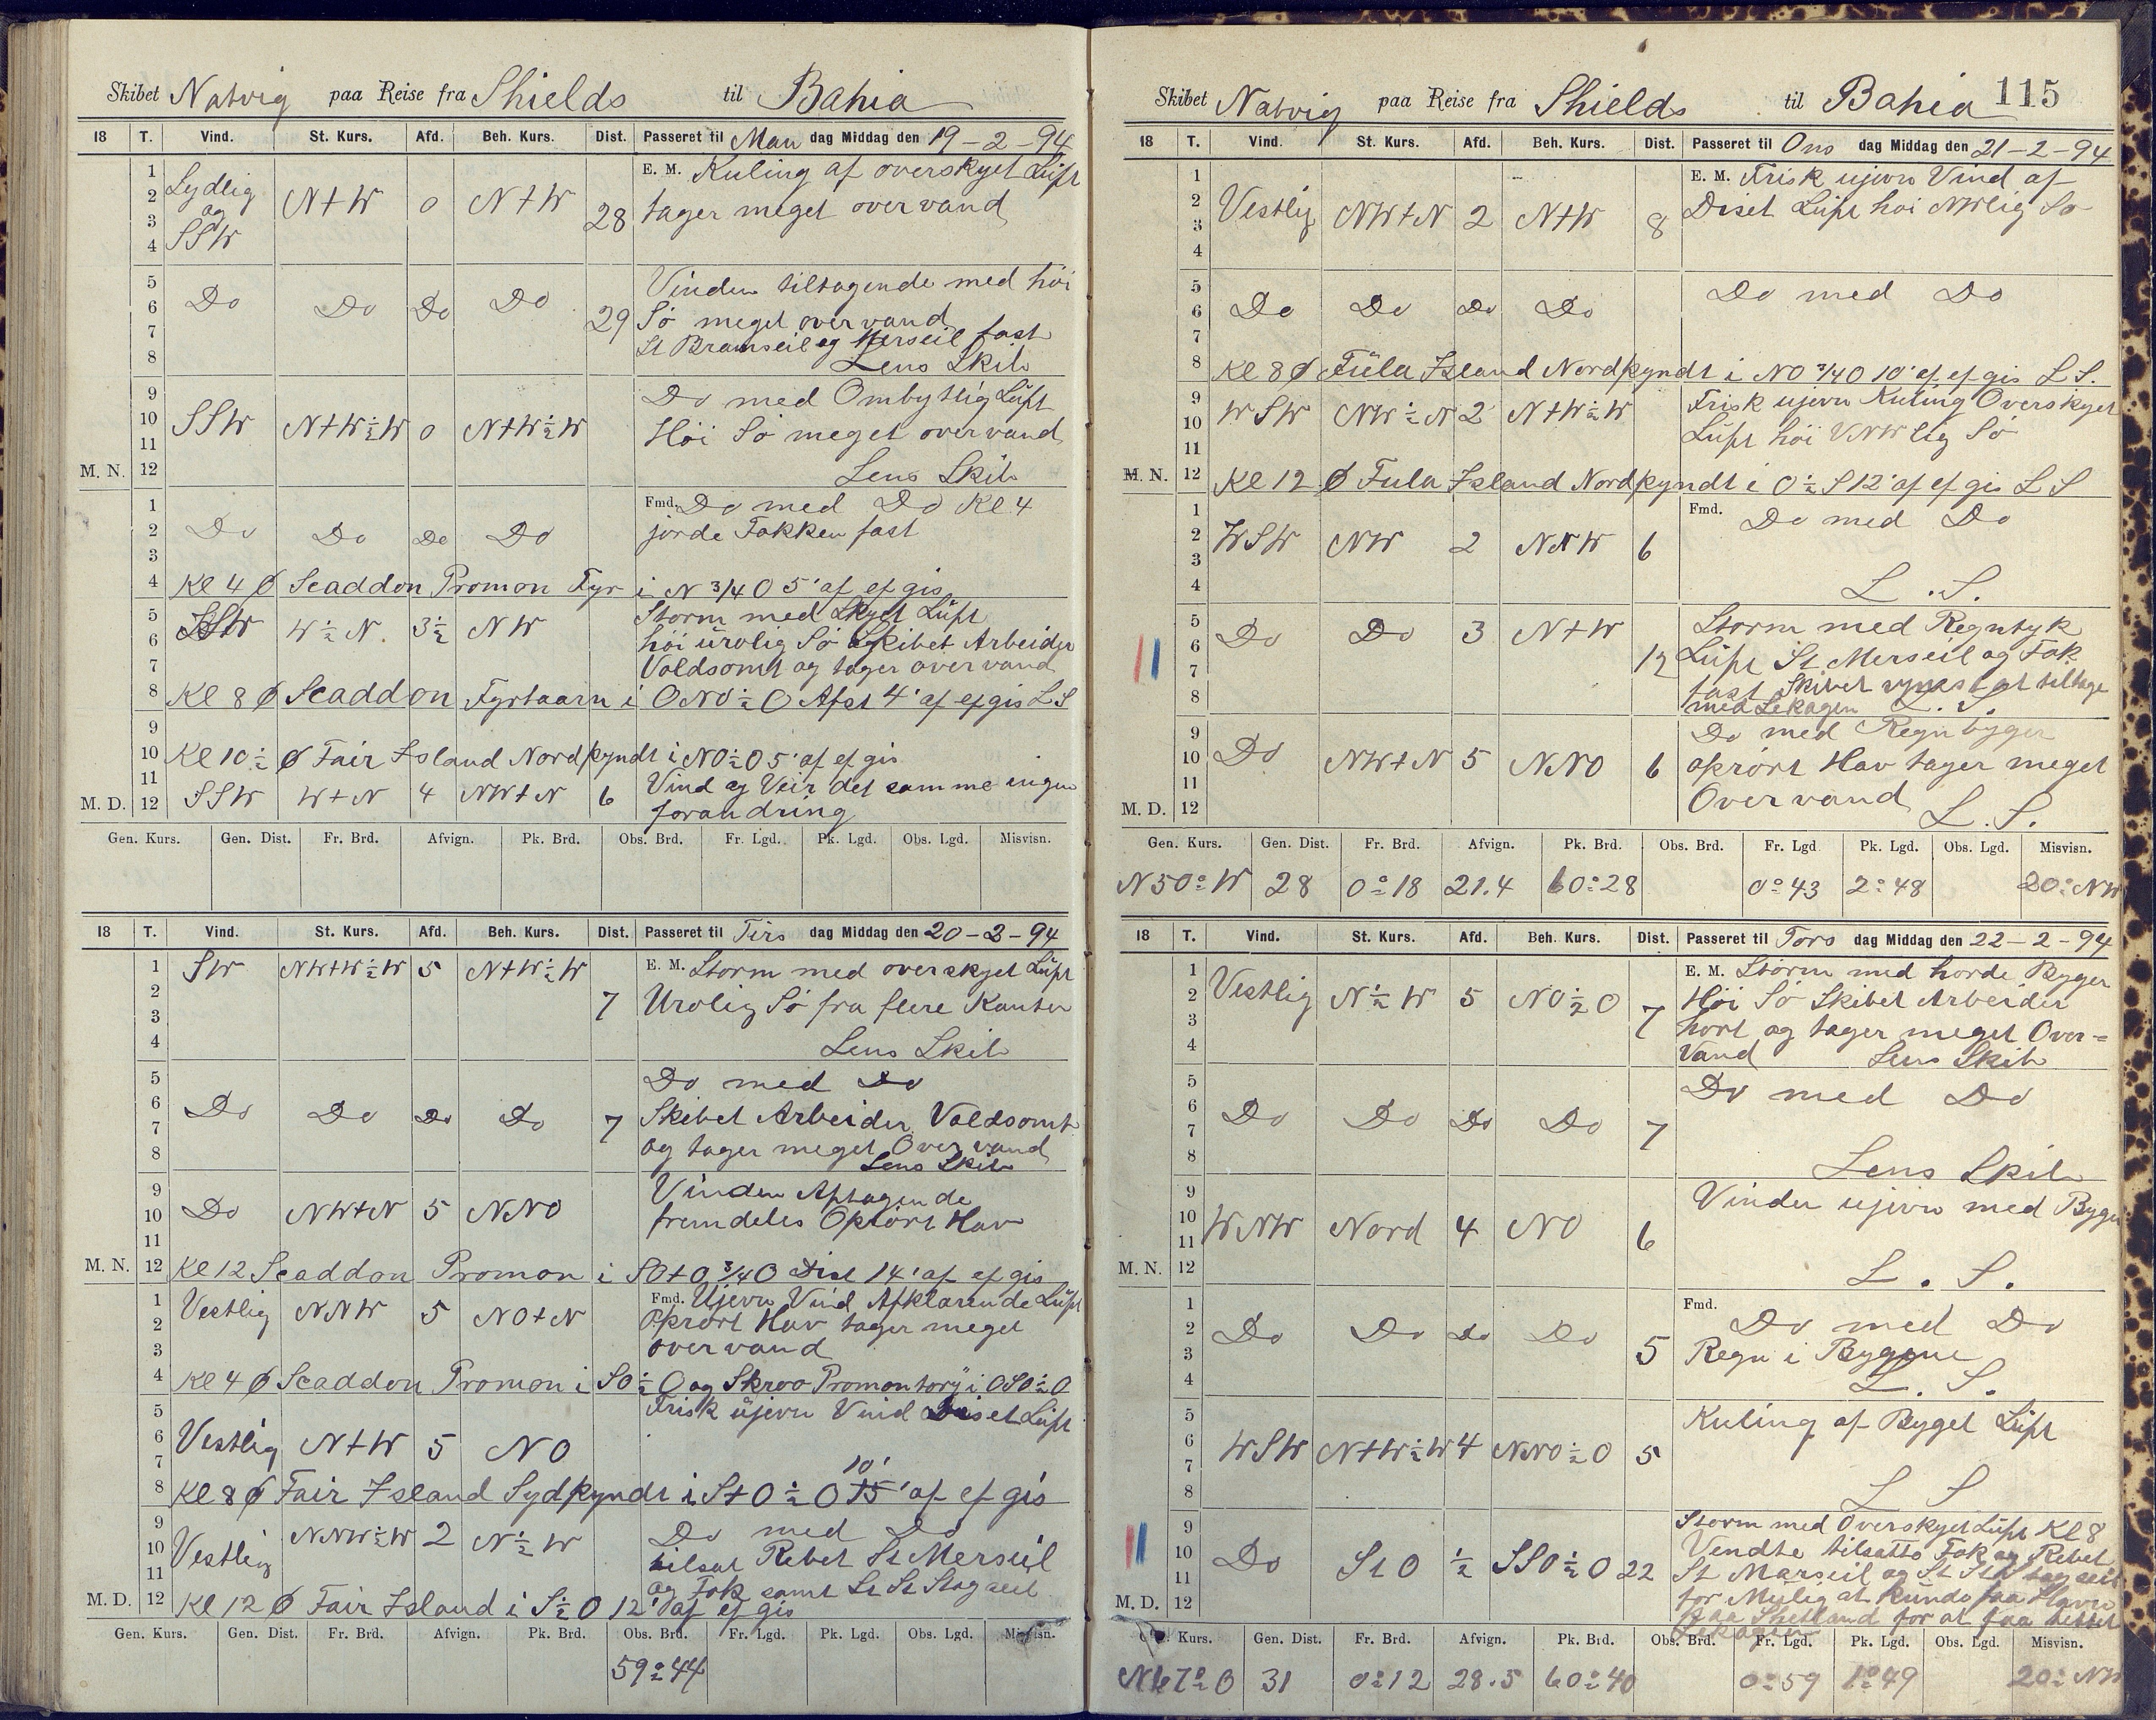 Skibet Natvig paa Reise fra Shields til Bahia
18 T. Vind. St. Kurs. Afd. Beh. Kurs. Dist. Passeret til Man dag Middag den 19-2-94
1 E. M. Kuling af overskyet Luft
2 Sydlig og SSW N+W 0 N+W 28 tager meget over vand
3
4
5 Vinden tiltagende med höi
6 Do Do Do Do 29 Sö meget over vand
7 St Bramseil og Merseil fast
8 Lens Skib
9 Do med Ombytlig Luft
10 SSW N+W½W 0 N+W½W Höi Sö meget over vand
11
M. N. 12 Lens Skib
1 Fmd. Do med Do Kl 4
2 Do Do Do Do jorde Fokken fast
3
4 Kl 4 Ø Scaddon Promon Fyr i N 3/4 O 5' af ef gis
5 Storm med Skyet Luft
6 SSW W½N. 3½ NW höi urolig Sö Skibet Arbeider
7 Voldsomt og tager over vand
8 Kl 8 Ø Scaddon Fyrtaarn i ONO½O Afst 4' af ef gis L S
9
10 Kl 10½ Ø Fair Island Nordpyndt i NO½O 5' af ef gis
11 Vind og Veir det samme ingen
M. D. 12 SSW W+N 4 NW+N 6 forandring
Gen. Kurs. Gen. Dist. Fr. Brd. Afvign. Pk. Brd. Obs. Brd. Fr. Lgd. Pk. Lgd. Obs. Lgd. Misvisn.
18 T. Vind. St. Kurs. Afd. Beh. Kurs. Dist. Passeret til Tirs dag Middag den 20-2-94
1 SW NW+W½W 5 N+W½W E. M. Storm med overskyet Luft
2 7 Urolig Sö fra flere Kanter
3
4 Lens Skib
5 Do med Do
6 Do Do Do Do 7 Skibet Arbeider Voldsomt
7 og tager meget Over vand
8 Lens Skib
9 Vinden Aftagende
10 Do NW+N 5 NNO fremdeles Oprört Hav
11
M. N. 12 Kl 12 Scaddon Promon i SO+O 3/4 O Dist 14' af ef gis
1 Vestlig NNW 5 NO+N Fmd. Ujevn Vind Afklarende Luft
2 Oprört Hav tager meget
3 over vand
4 Kl 4 Ø Scaddon Promon i SO½O og Skroo Promontory i OSO½O
5 Frisk ujevn Vind Diset Luft
6 Vestlig N+W 5 NO
7 10'
8 Kl 8 Ø Fair Island Sydpyndt i S+O½O 15' af ef gis
9 Do med Do
10 Vestlig NNW½W 2 N½W tilsat Rebet St Merseil
11 og Fok samt St St Stagseil
M. D. 12 Kl 12 Ø Fair Island i S½O 12' af ef gis
Gen. Kurs. Gen. Dist. Fr. Brd. Afvign. Pk. Brd. Obs. Brd. Fr. Lgd. Pk. Lgd. Obs. Lgd. Misvisn.
59°44
Skibet Natvig paa Reise fra Shields til Bahia 115
18 T. Vind. St. Kurs. Afd. Beh. Kurs. Dist. Passeret til Ons dag Middag den 21-2-94
1 E. M. Frisk ujevn Vind af
2 Vestlig NW+N 2 N+W 8 Diset Luft höi NWlig Sö
3
4
5 Do med Do
6 Do Do Do Do
7
8 Kl 8 Ø Fula Island Nordpyndt i NO 3/4 O 10' af ef gis L S.
9 Frisk ujevn Kuling Overskyet
10 WSW NW½N 2 N+W½W Luft höi VNWlig Sö
11
M. N. 12 Kl 12 Ø Fula Island Nordpyndt i O½S 12' af ef gis L S
1 Fmd. Do med Do
2 WSW NW 2 NNW 6
3
4 L. S.
5 Storm med Regntyk
6 Do Do 3 N+W 12 Luft St Merseil og Fok
7 fast Skibet synes at tiltage
8 med Lekagen L. S.
9 Do med Regn byger
10 Do NW+N 5 NNO 6 oprört Hav tager meget
11 Over vand
M. D. 12 L. S.
Gen. Kurs. Gen. Dist. Fr. Brd. Afvign. Pk. Brd. Obs. Brd. Fr. Lgd Pk. Lgd. Obs. Lgd. Misvisn.
N 50° W 28 0°18 21.4 60°28 0°43 2°48 20° NW
18 T. Vind. St. Kurs. Afd. Beh. Kurs. Dist. Passeret til Tors dag Middag den 22-2-94
1 E. M. Storm med horde Byger
2 Vestlig N½W 5 NO½O 7 Höi Sö Skibet Arbeider
3 hort og tager meget Over-
4 Vand Lens Skib
5 Do med Do
6 Do Do Do Do 7
7
8 Lens Skib
9 Vinden ujevn med Byger
10 WNW Nord 4 NO 6
11
M. N. 12 L. S.
1 Fmd. Do med Do
2 Do Do Do Do 5
3 Regn i Bygene
4 L. S.
5 Kuling af Byget Luft
6 WSW N+W½W 4 NNO½O 5
7
8 L S
9 Storm med Overskyet Luft Kl 8
10 Do St O ½ SSO½O 22 Vendte tilsatte Fok og Rebet
11 St Marseil og St St Stag seil
M. D. 12 for Mulig at kunde faa Havn
paa Shetland for at faa tettet
Lekagen
Kurs. Gen. Dist. Fr. Brd. Afvign. Pk. Brd. Obs. Brd. Fr. Lgd. Pk. Lgd. Obs. Lgd. Misvisn.
N 67° O 31 0°12 28.5 60°40 0°59 1°49 20° NW